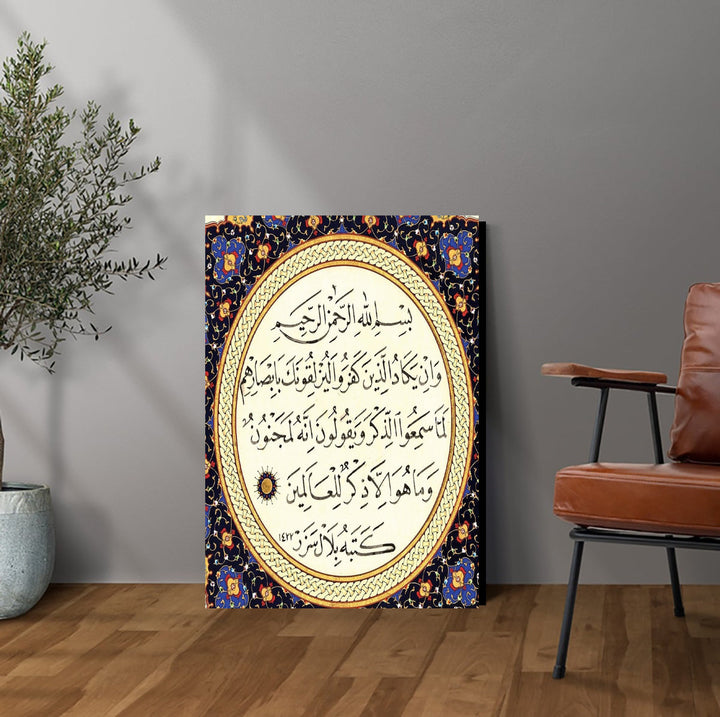 بِسْمِ اللهِ الرَّحْمٰنِ الرَّحِيمِ
وَاِنْ يَكَادُ الَّذِينَ كَفَرُوا لَيُزْلِقُونَكَ بِاَبْصَارِهِمْ
لَمَّا سَمِعُوا الذِّكْرَ وَيَقُولُونَ اِنَّهُ لَمَجْنُونٌ
وَمَا هُوَ اِلَّا ذِكْرٌ لِلْعَالَمِينَ
كَتَبَهُ بِلَال سَزَرْ ١٤٢٢